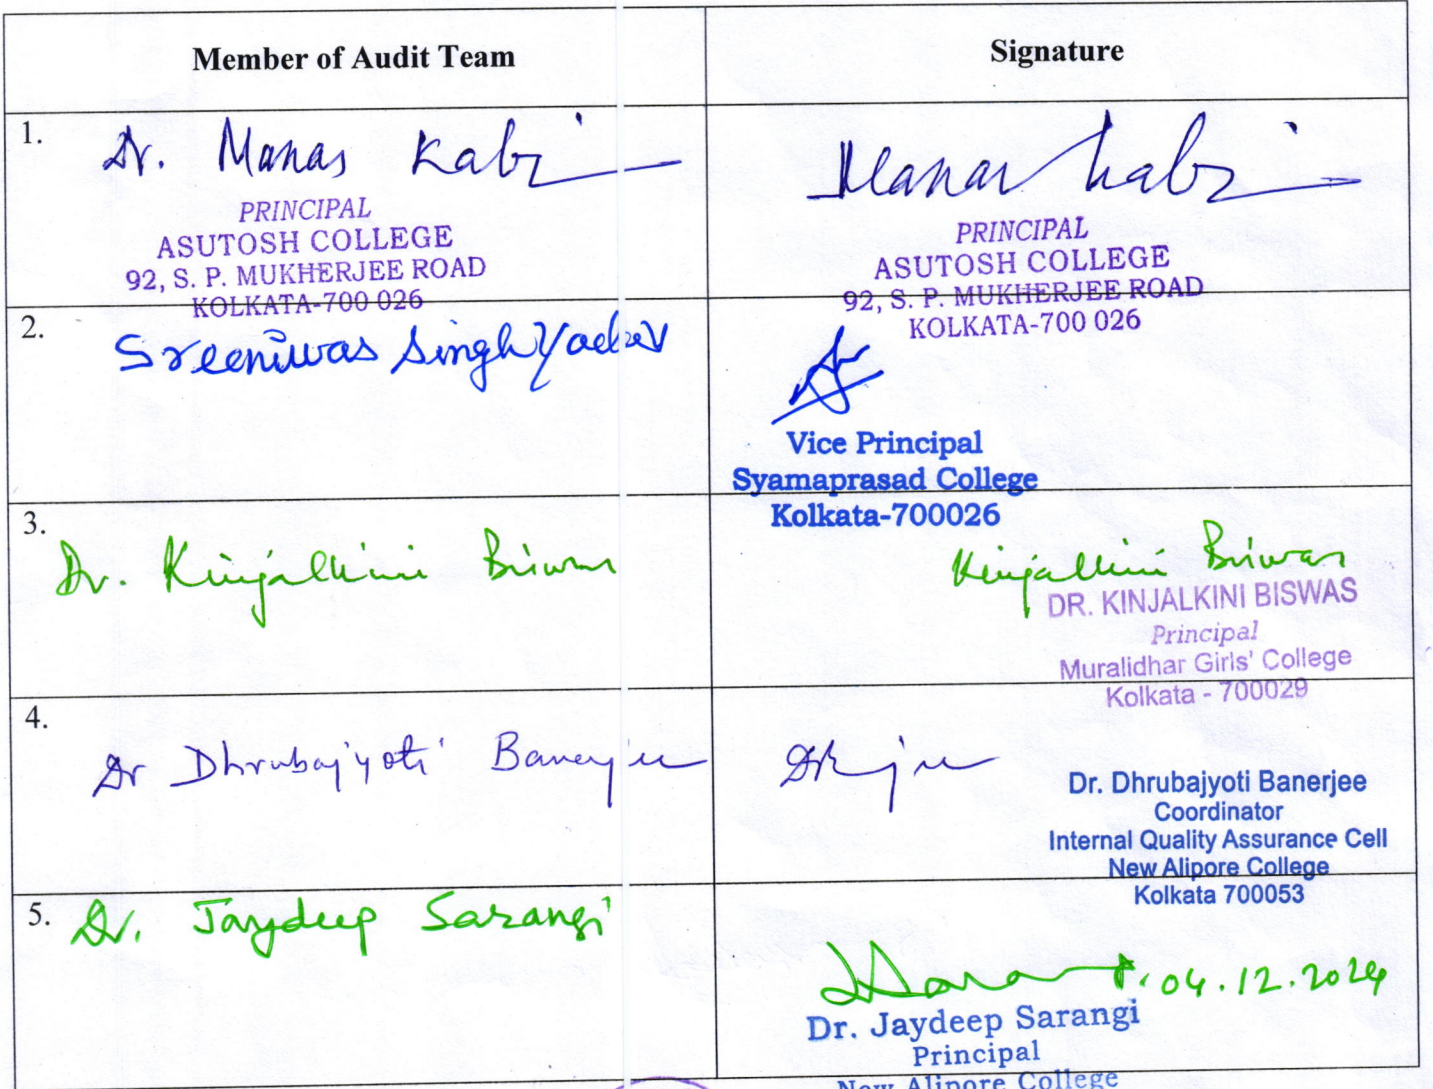 Member of Audit Team
Signature
1.
Dr. Manas Kabi
PRINCIPAL
ASUTOSH COLLEGE
92, S. P. MUKHERJEE ROAD
KOLKATA-700 026
Manas Kabi
PRINCIPAL
ASUTOSH COLLEGE
92, S. P. MUKHERJEE ROAD
KOLKATA-700 026
2.
Sreeniwas Singh Yadav
Vice Principal
Syamaprasad College
Kolkata-700026
3.
Dr. Kinjalkini Biswas
Kinjalkini Biswas
DR. KINJALKINI BISWAS
Principal
Muralidhar Girls' College
Kolkata - 700029
4.
Dr Dhrubajyoti Banerjee
Dr. Dhrubajyoti Banerjee
Coordinator
Internal Quality Assurance Cell
New Alipore College
Kolkata 700053
5.
Dr. Jaydeep Sarangi
04.12.2024
Dr. Jaydeep Sarangi
Principal
New Alipore College